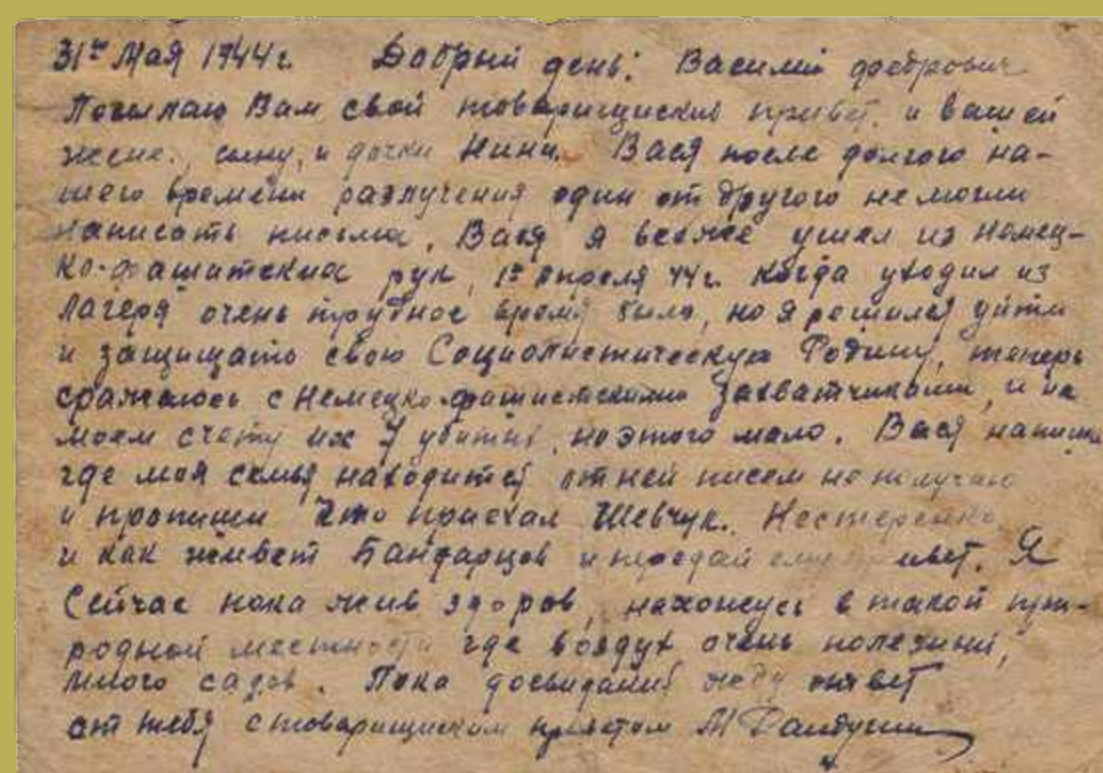 31го Мая 1944г. Добрый день! Василий федрович
Посылаю Вам свой товарищиский привет, и вашей
жене, сыну, и дочки Нини. Вася после долгого на-
шего времени разлучения один от другого не могли
написать письма, Вася я всеже ушел из немец-
ко-фашитских рук, 1го Апреля 44г. когда уходил из
лагеря очень трудное время было, но я решился уйти
и защищать свою Социолистическую Родину, теперь
сражаюсь с немецко-фашистскими Захватчиками, и на
моем счету их 7 убитых, но этого мало. Вася напиши
где моя семья находится от ней писем не получаю
и пропиши Что приехал Шевчук. Нестеренко
и как живет Бандарцов и передай ему привет. Я
Сейчас пока жив здоров, нахожусь в такой при-
родной местности где воздух очень полезний,
много садов. Пока досвидания жду ответ
от тебя с товарищиским приветом М